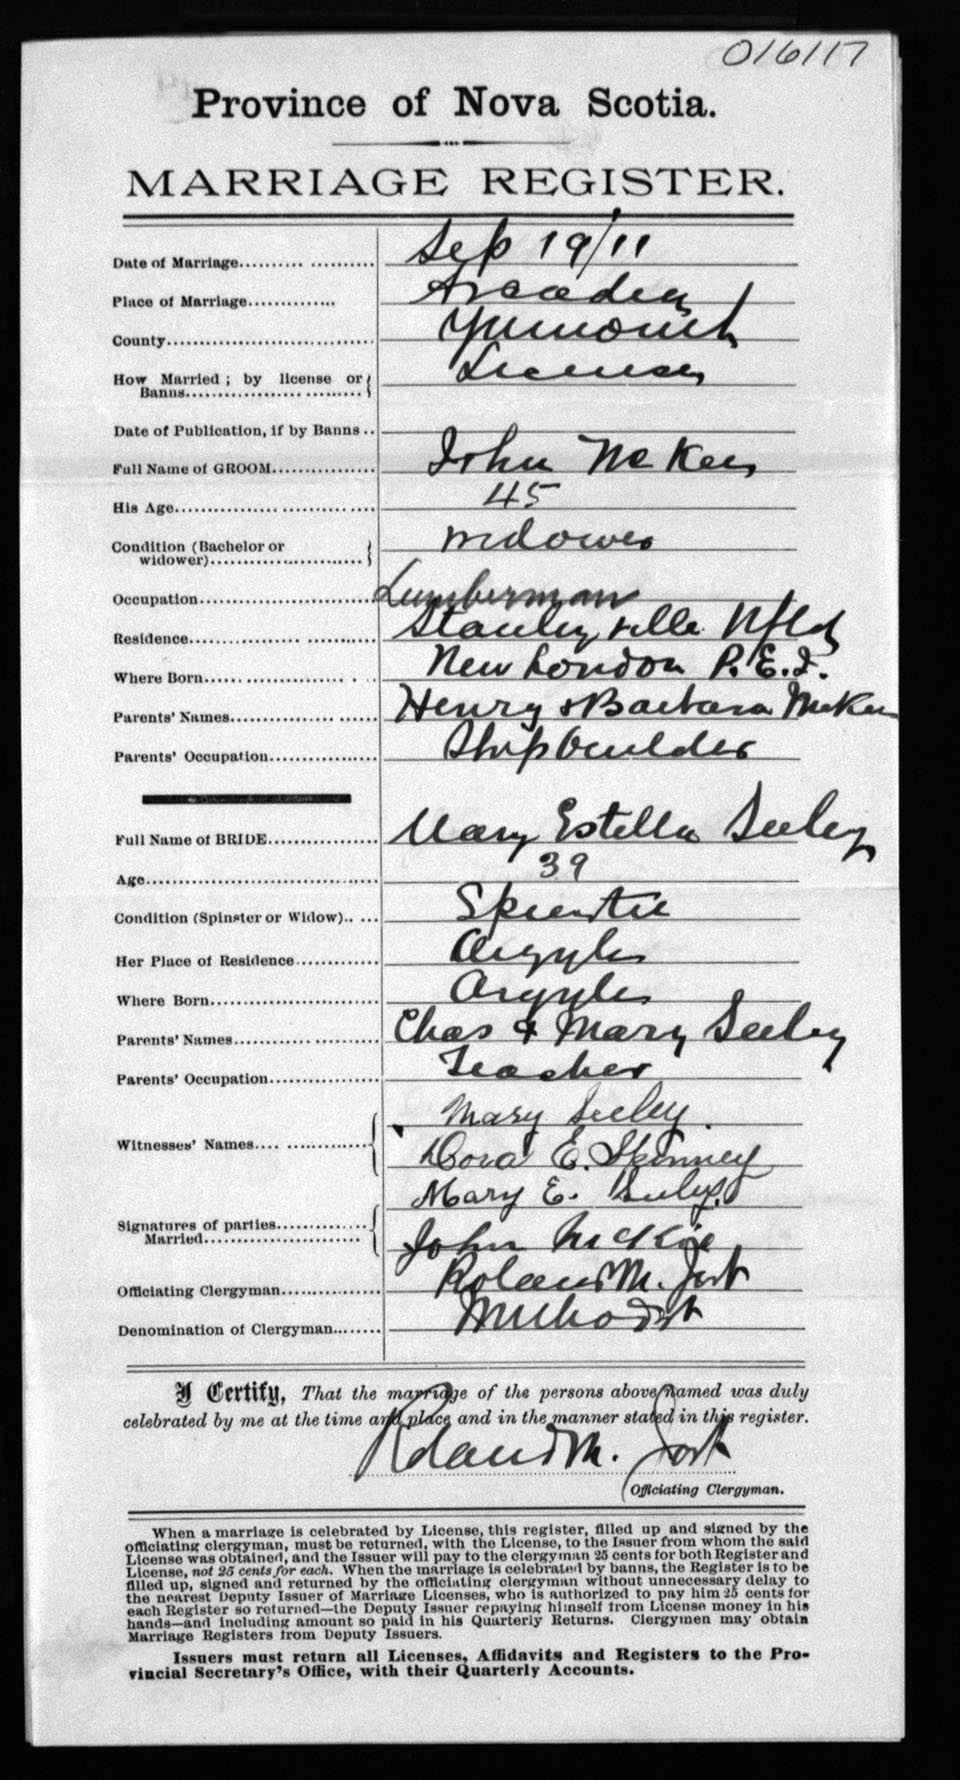 016117
Province of Nova Scotia.
MARRIAGE REGISTER.
Date of Marriage.......... ........... Sep 19/11
Place of Marriage.............. Arcadia
County................................ Yarmouth
How Married ; by license or License
Banns.................. .........
Date of Publication, if by Banns ..
Full Name of GROOM................ John McKee
His Age.................. .............. 45
Condition (Bachelor or widower
widower)..........................
Occupation........................... Lumberman
Residence................ ........... Stanleyville Nfld
Where Born...... .............. . . New London P.E.I.
Parents' Names................. ...... Henry & Barbara McKee
Parents' Occupation................. Shipbuilder
Full Name of BRIDE................. Mary Estella Seeley
Age.................................... 39
Condition (Spinster or Widow).. ... Spinster
Her Place of Residence............. Argyle
Where Born.......................... Argyle
Parents' Names............ .......... Chas & Mary Seeley
Parents' Occupation................. Teacher
Mary Seeley
Witnesses' Names.... ..............
Dora E. Skinney
Mary E. Seeley
Signatures of parties..............
Married......................... John McKie
Officiating Clergyman............... Roland M. Jost
Denomination of Clergyman........ Methodist
I Certify, That the marriage of the persons above named was duly
celebrated by me at the time and place and in the manner stated in this register.
Roland M. Jost
Officiating Clergyman.
When a marriage is celebrated by License, this register, filled up and signed by the
officiating clergyman, must be returned, with the License, to the Issuer from whom the said
License was obtained, and the Issuer will pay to the clergyman 25 cents for both Register and
License, not 25 cents for each. When the marriage is celebrated by banns, the Register is to be
filled up, signed and returned by the officiating clergyman without unnecessary delay to
the nearest Deputy Issuer of Marriage Licenses, who is authorized to pay him 25 cents for
each Register so returned—the Deputy Issuer repaying himself from License money in his
hands—and including amount so paid in his Quarterly Returns. Clergymen may obtain
Marriage Registers from Deputy Issuers.
Issuers must return all Licenses, Affidavits and Registers to the Pro-
vincial Secretary's Office, with their Quarterly Accounts.